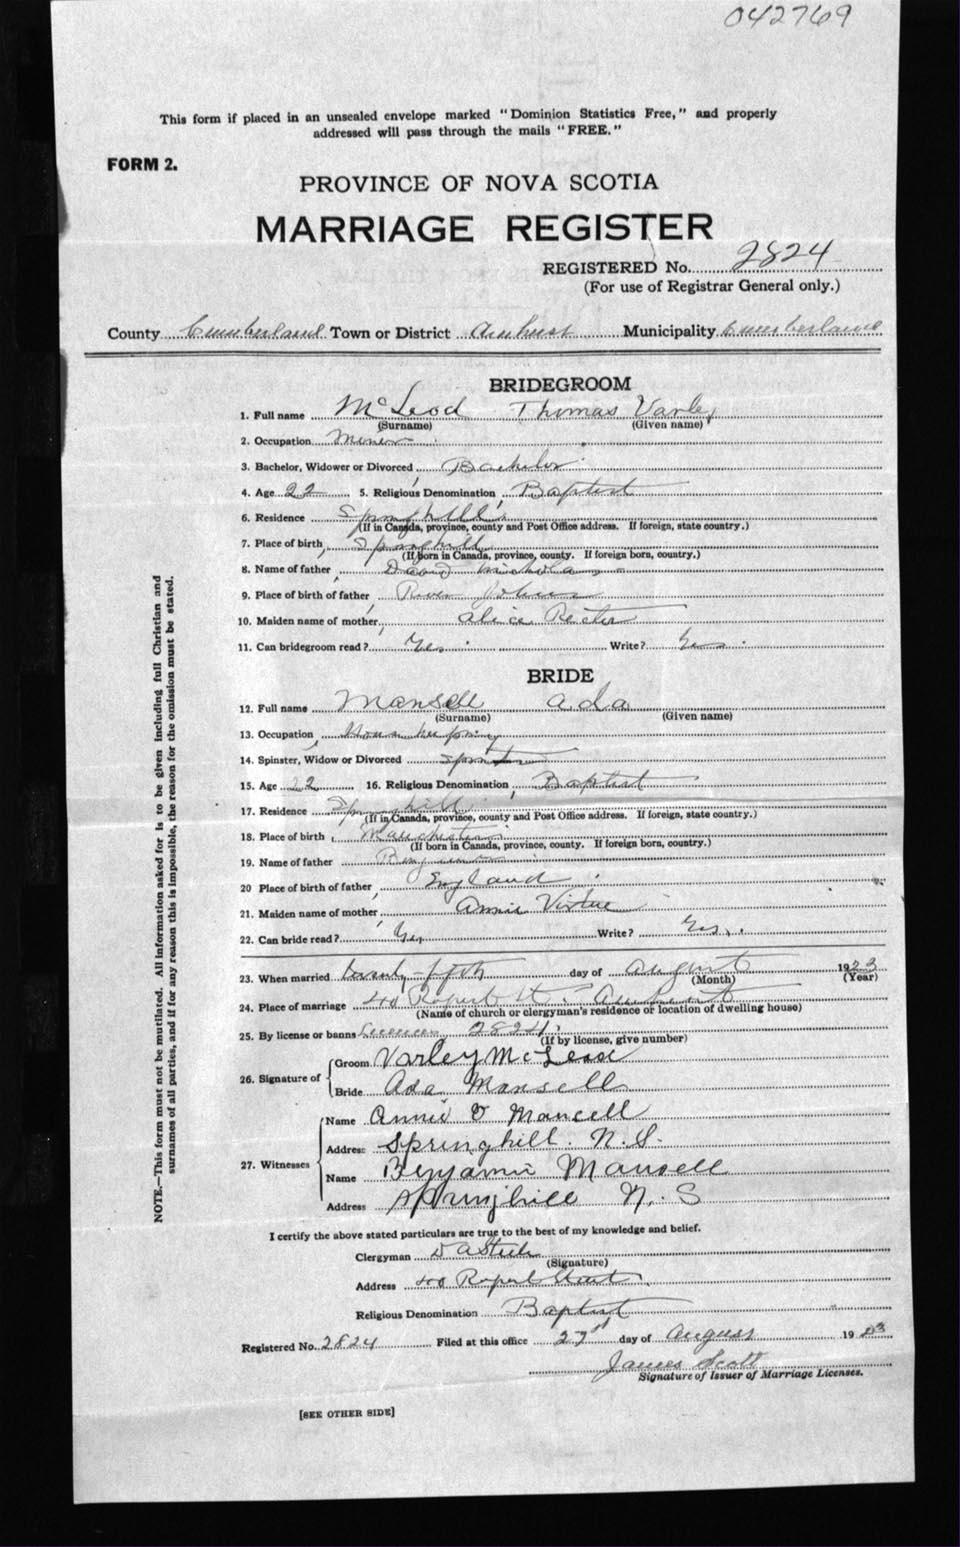 042769
This form if placed in an unsealed envelope marked "Dominion Statistics Free," and properly
addressed will pass through the mails "FREE."
FORM 2.
PROVINCE OF NOVA SCOTIA
MARRIAGE REGISTER
REGISTERED No. 2824
(For use of Registrar General only.)
County Cumberland Town or District Amherst Municipality Cumberland
BRIDEGROOM
1. Full name McLeod Thomas Varley
(Surname) (Given name)
2. Occupation Miner
3. Bachelor, Widower or Divorced Bachelor
4. Age 22 5. Religious Denomination Baptist
6. Residence Springhill
(If in Canada, province, county and Post Office address. If foreign, state country.)
7. Place of birth Springhill
(If born in Canada, province, county. If foreign born, country.)
8. Name of father David
9. Place of birth of father River John
10. Maiden name of mother Alice Rector
11. Can bridegroom read? Yes Write? Yes
BRIDE
12. Full name Mansell Ada
(Surname) (Given name)
13. Occupation House keeping
14. Spinster, Widow or Divorced Spinster
15. Age 22 16. Religious Denomination Baptist
17. Residence Springhill
(If in Canada, province, county and Post Office address. If foreign, state country.)
18. Place of birth Manchester
(If born in Canada, province, county. If foreign born, country.)
19. Name of father Benjamin
20 Place of birth of father England
21. Maiden name of mother Annie Virtue
22. Can bride read? Yes Write? Yes.
23. When married twenty-fifth day of August 1923
(Month) (Year)
24. Place of marriage 40 Rupert St. Amherst
(Name of church or clergyman's residence or location of dwelling house)
25. By license or banns License 2824
(If by license, give number)
26. Signature of Groom Varley McLeod
Bride Ada Mansell
27. Witnesses Name Annie V Mancell
Address Springhill. N.S.
Name Benjamin Mansell
Address Springhill N.S
I certify the above stated particulars are true to the best of my knowledge and belief.
Clergyman D A Steele
(Signature)
Address 40 Rupert Street
Religious Denomination Baptist
Registered No. 2824 Filed at this office 27 day of August 1923
James Scott
Signature of Issuer of Marriage Licenses.
[SEE OTHER SIDE]
NOTE.—This form must not be mutilated. All information asked for is to be given including full Christian and
surnames of all parties, and if for any reason this is impossible, the reason for the omission must be stated.